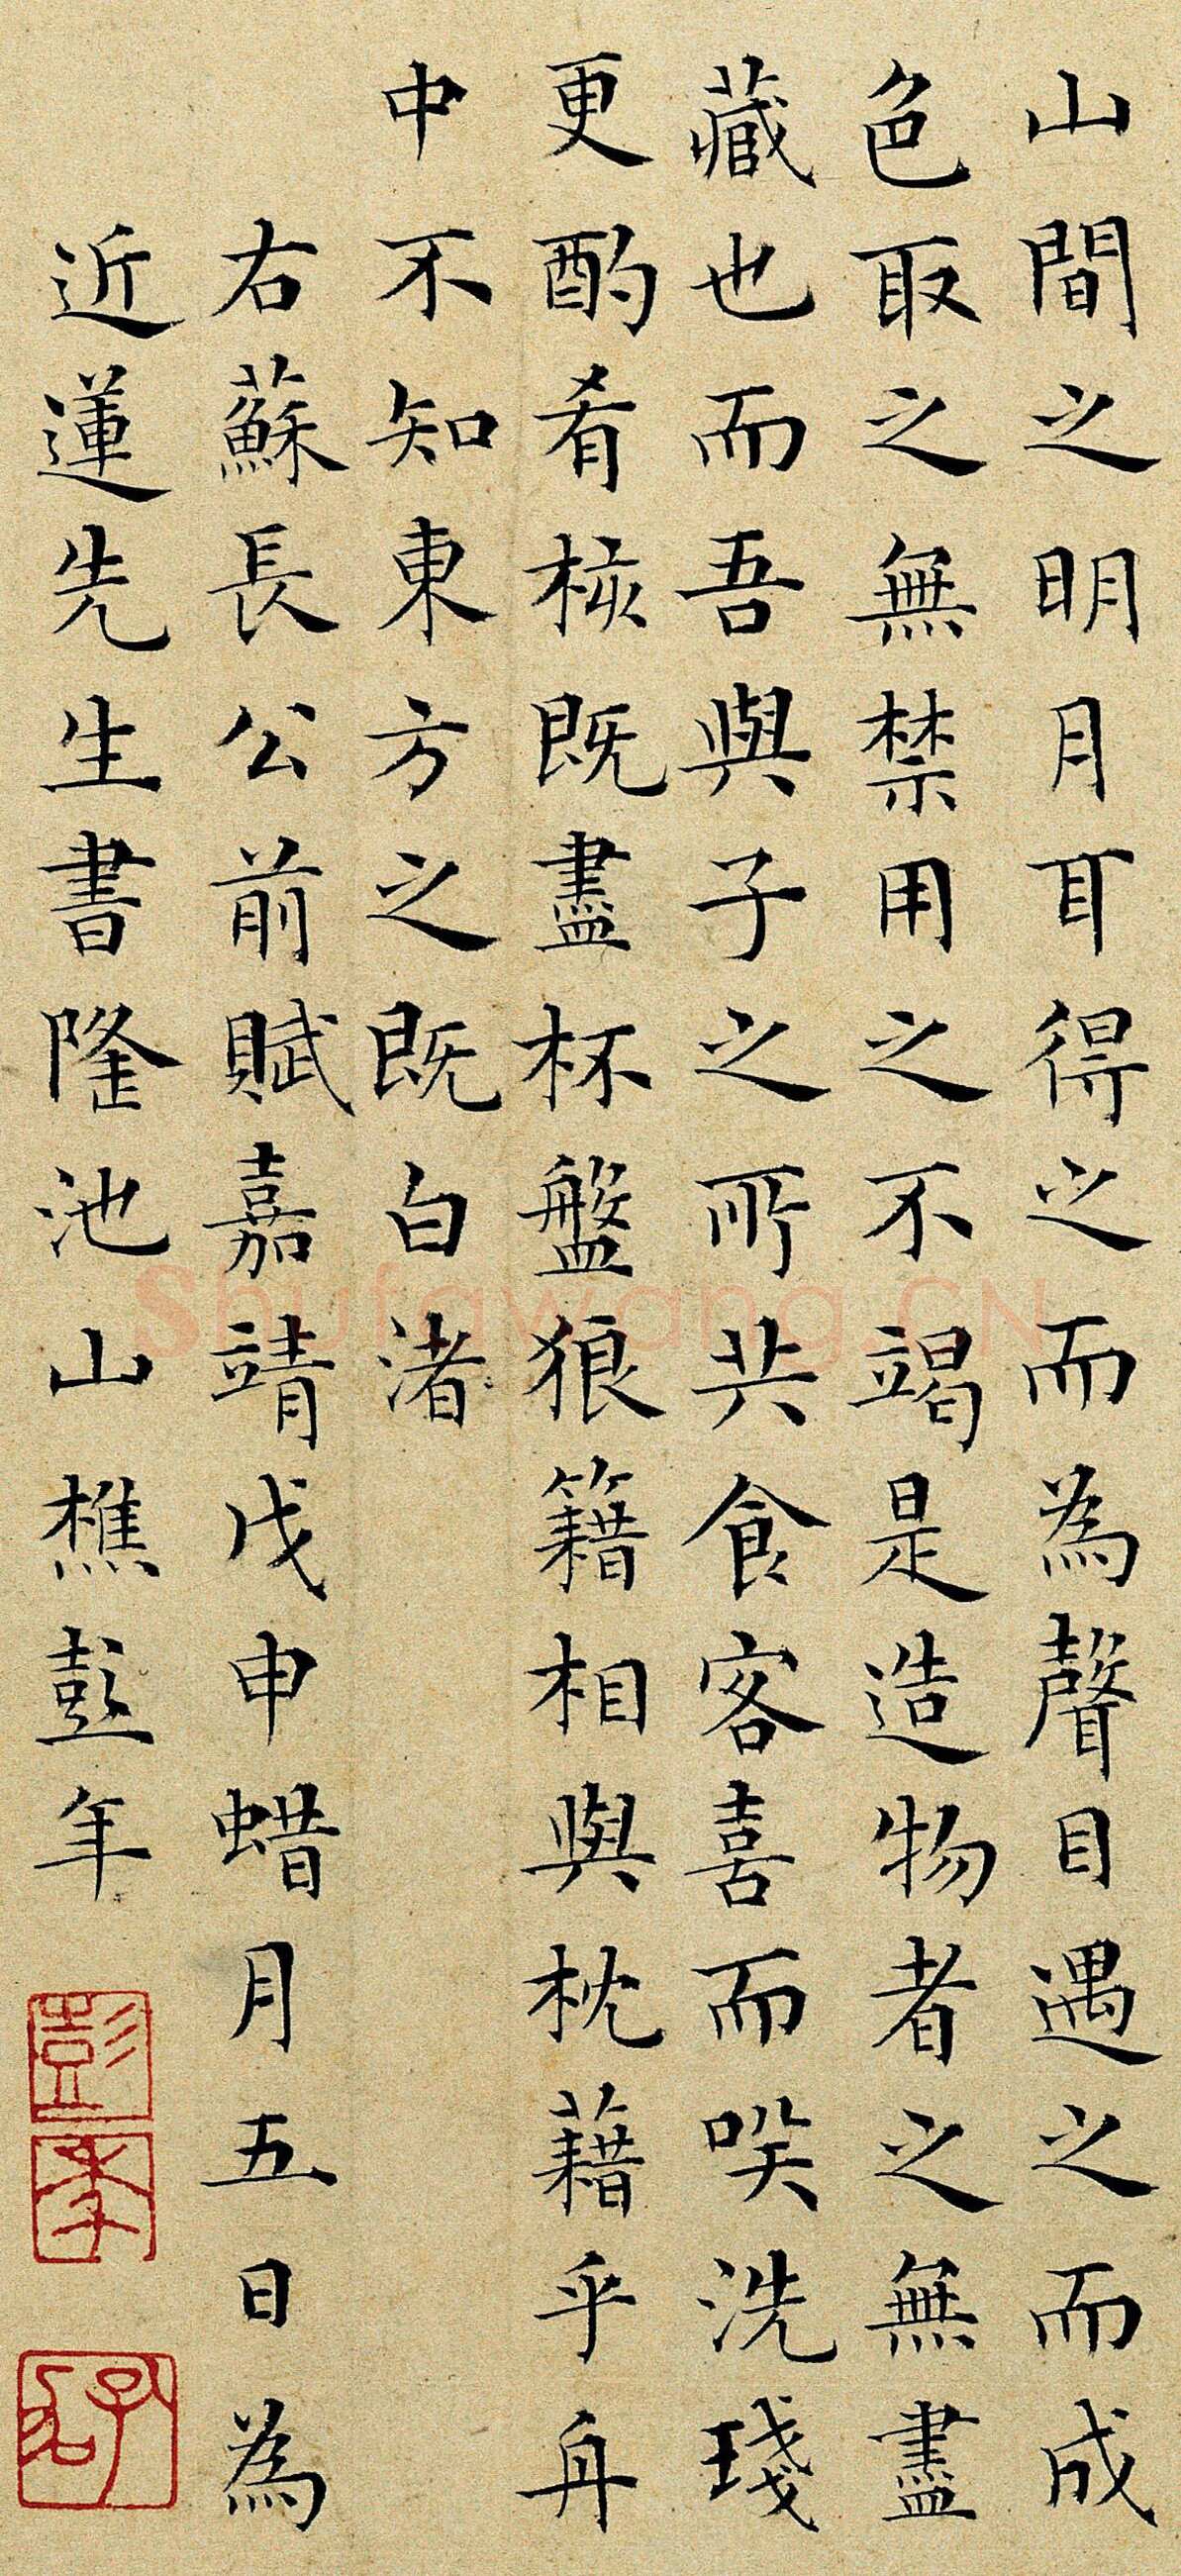 山間之明月耳得之而為聲目遇之而成
色取之無禁用之不竭是造物者之無盡
藏也而吾與子之所共食客喜而笑洗琖
更酌肴核既盡杯盤狼籍相與枕藉乎舟
中不知東方之既白渚
右蘇長公前賦嘉靖戊申蜡月五日為
近蓮先生書隆池山樵彭年
彭
年
Shufawang.CN